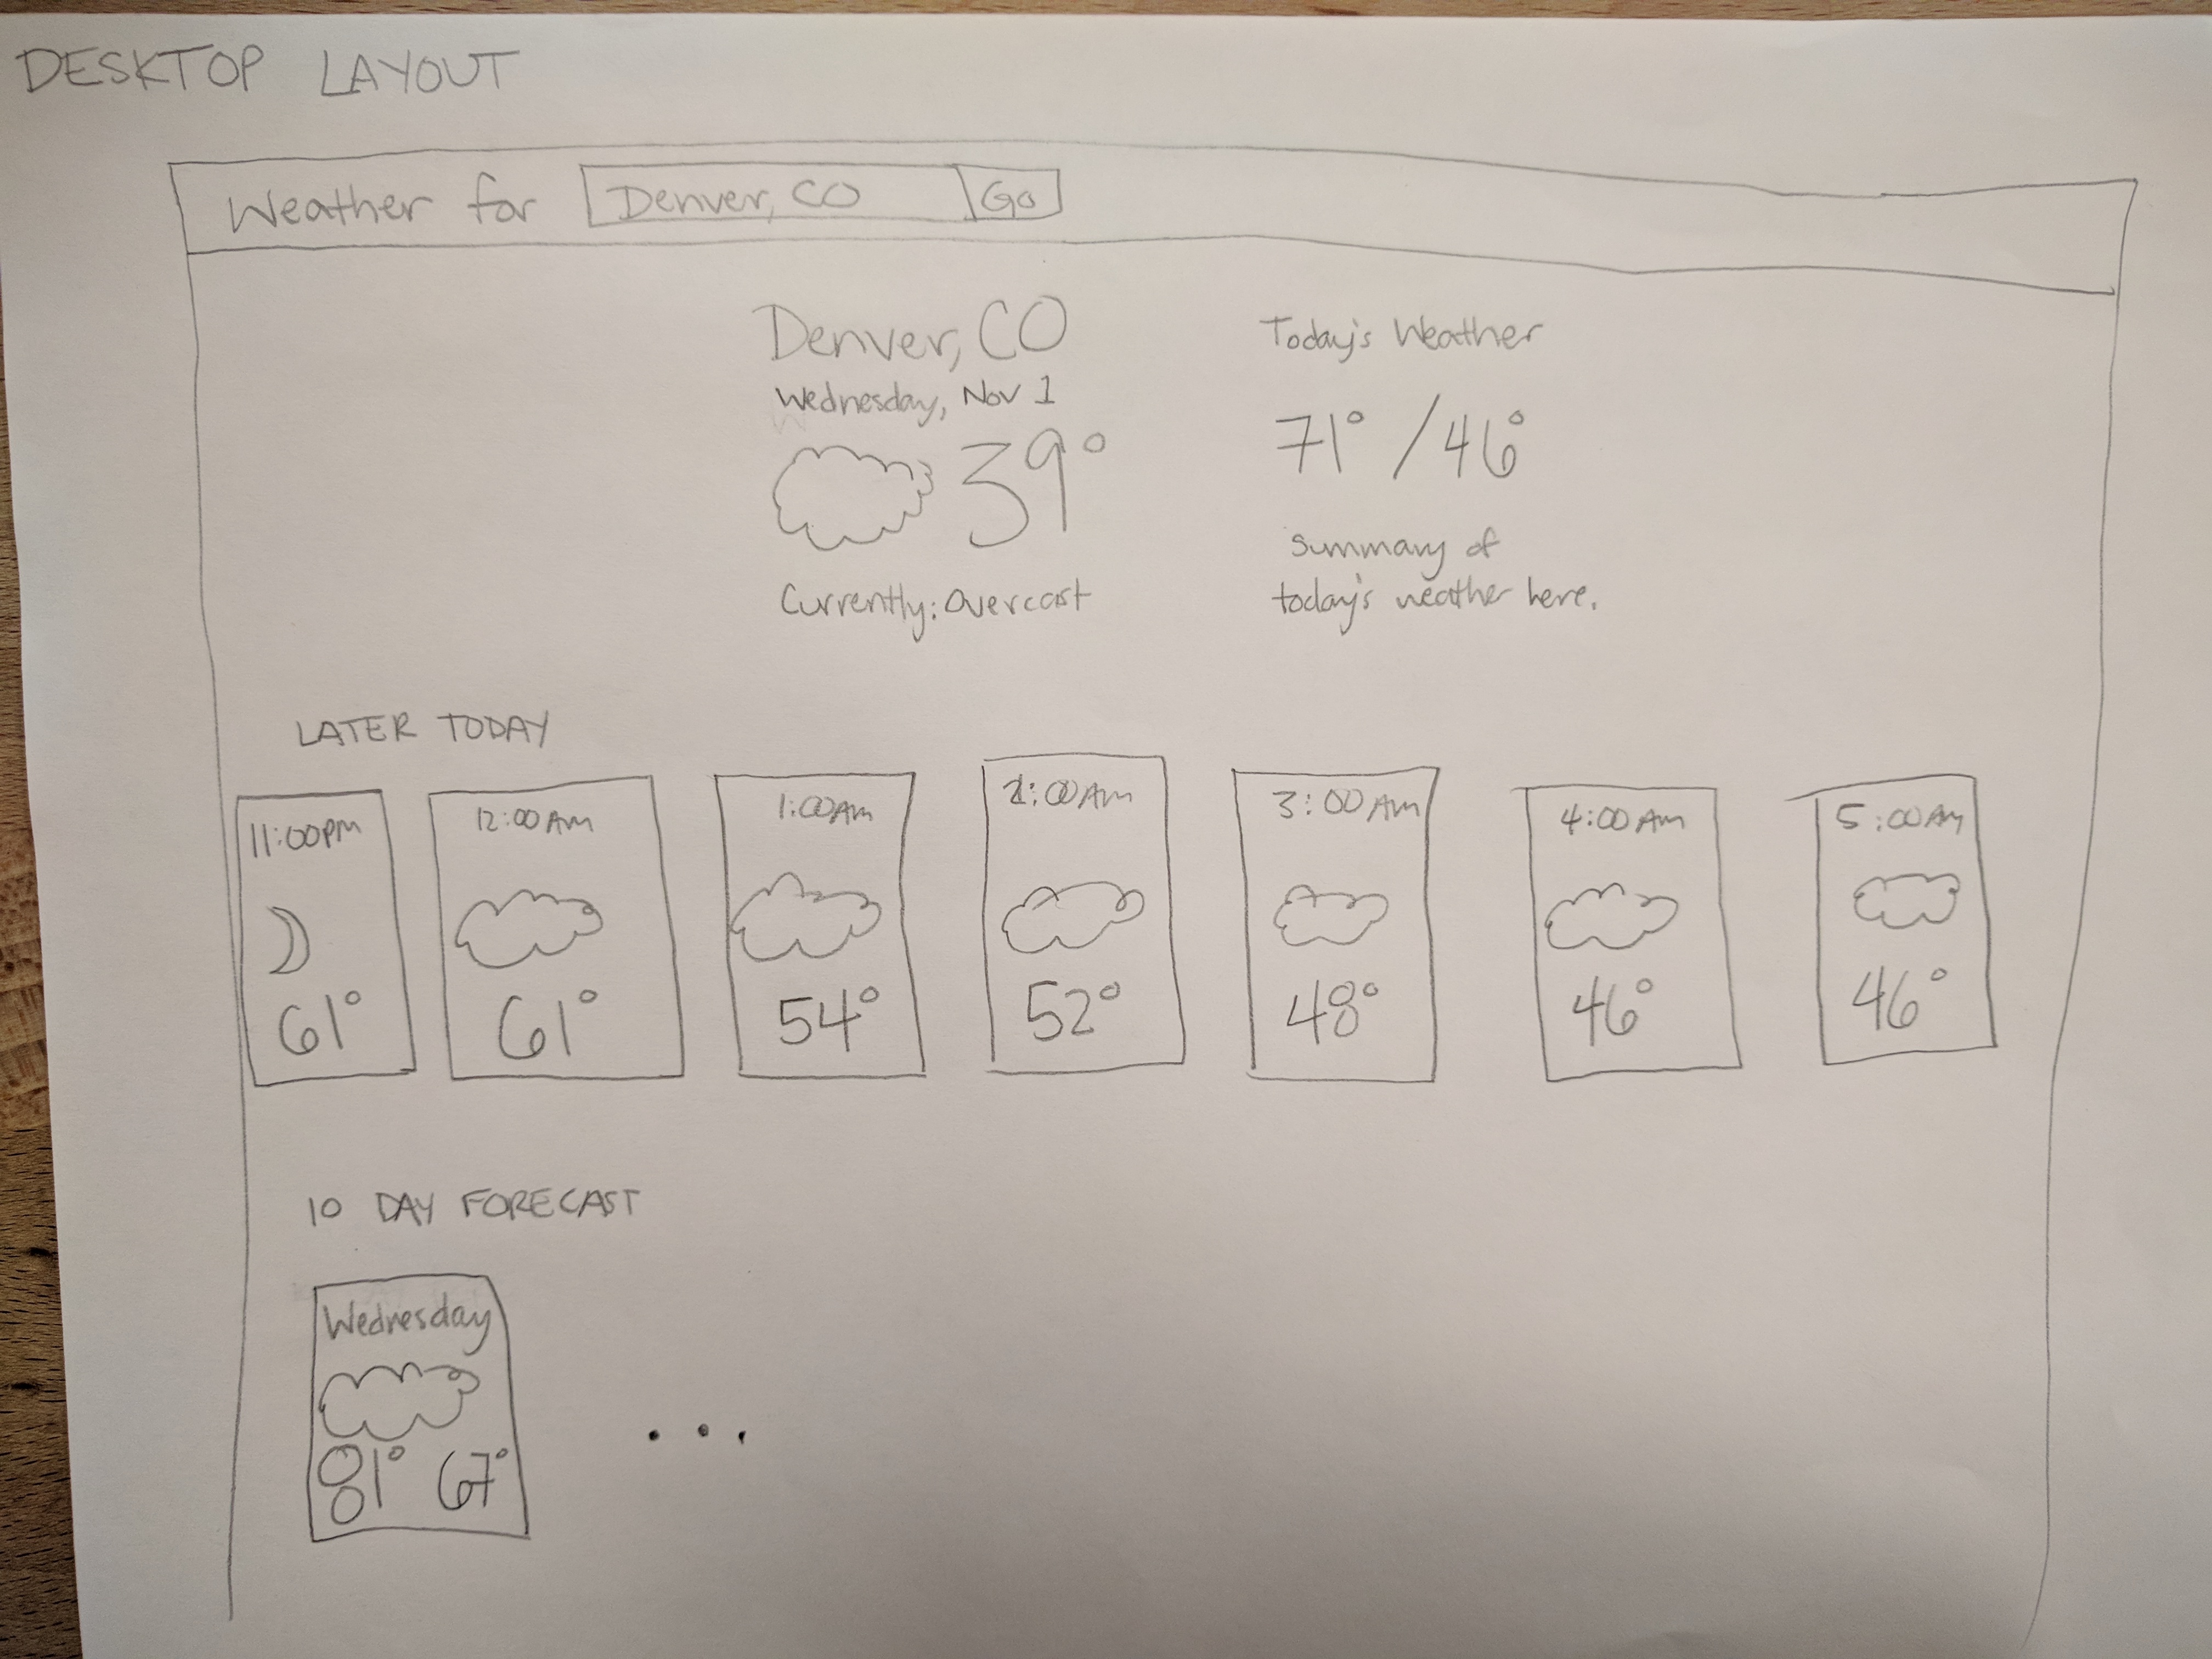 DESKTOP LAYOUT
Weather for Denver, CO Go
Denver, CO
Wednesday, Nov 1
39°
Currently: Overcast
Today's Weather
71° / 46°
Summary of
today's weather here.
LATER TODAY
11:00PM 12:00AM 1:00AM 2:00AM 3:00AM 4:00AM 5:00AM
61° 61° 54° 52° 48° 46° 46°
10 DAY FORECAST
Wednesday
81° 67°
...